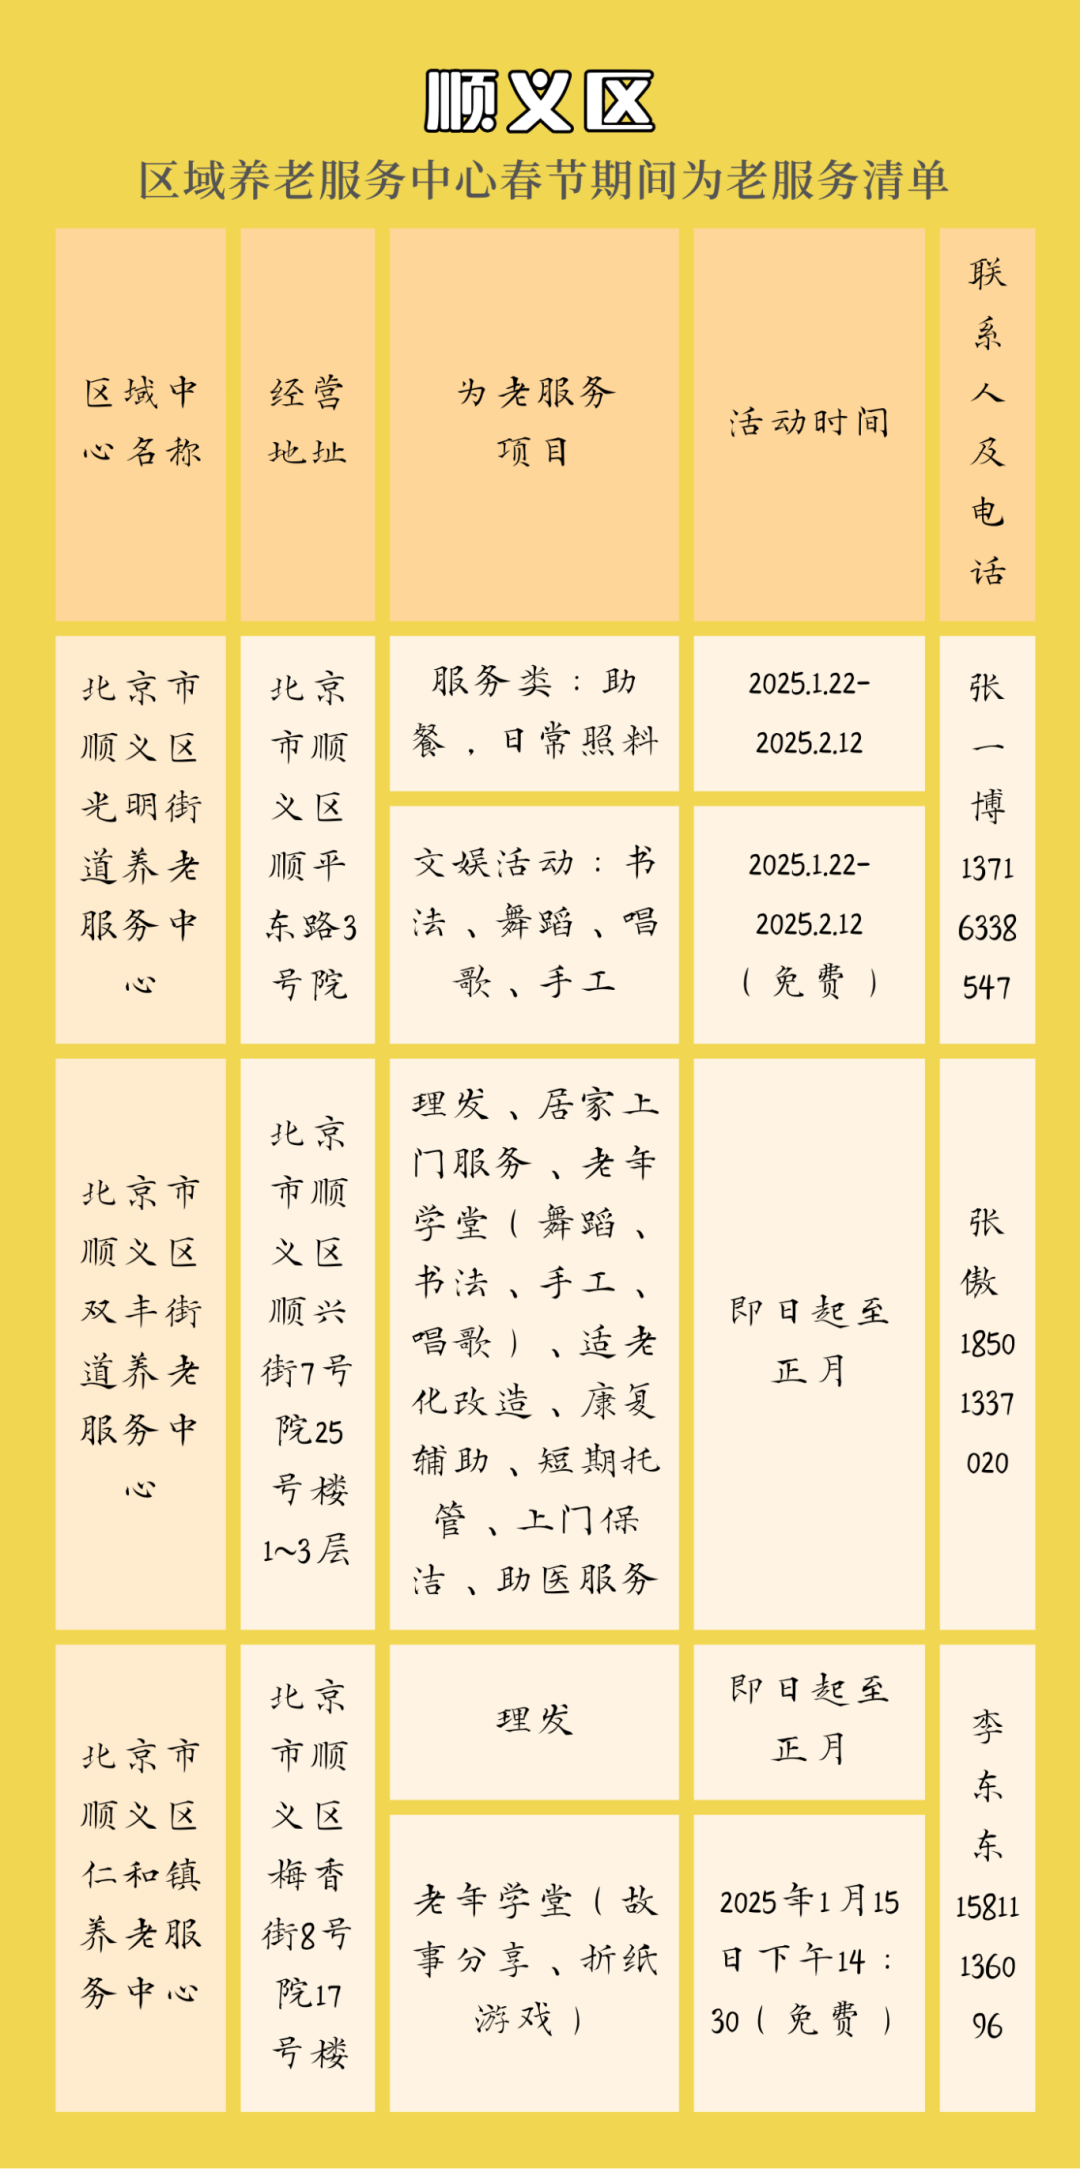 顺义区
区域养老服务中心春节期间为老服务清单
区域中
心名称
经营
地址
为老服务
项目
活动时间
联
系
人
及
电
话
北京市
顺义区
光明街
道养老
服务中
心
北京
市顺
义区
顺平
东路3
号院
服务类：助
餐，日常照料
2025.1.22-
2025.2.12
文娱活动：书
法、舞蹈、唱
歌、手工
2025.1.22-
2025.2.12
（免费）
张
一
博
1371
6338
547
北京市
顺义区
双丰街
道养老
服务中
心
北京
市顺
义区
顺兴
街7号
院25
号楼
1~3层
理发、居家上
门服务、老年
学堂（舞蹈、
书法、手工、
唱歌）、适老
化改造、康复
辅助、短期托
管、上门保
洁、助医服务
即日起至
正月
张
傲
1850
1337
020
北京市
顺义区
仁和镇
养老服
务中心
北京
市顺
义区
梅香
街8号
院17
号楼
理发
即日起至
正月
老年学堂（故
事分享、折纸
游戏）
2025年1月15
日下午14：
30（免费）
李
东
东
15811
1360
96